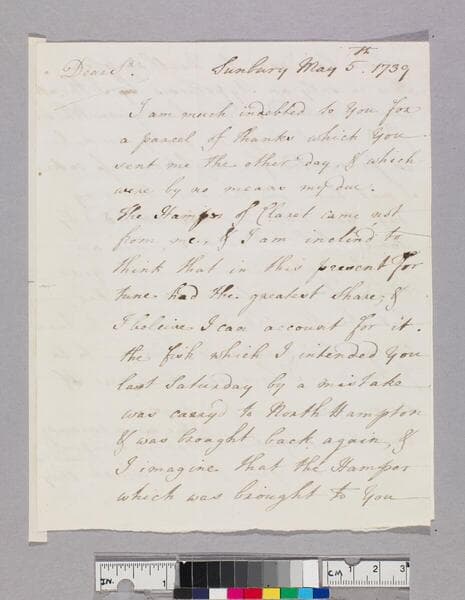 Dear Sr. Sunbury May 5th. 1739
I am much indebted to You for
a parcel of thanks which You
sent me the other day & which
were by no means my due.
The Hamper of Claret came not
from me, & I am inclin'd to
think that in this present For
tune had the greatest Share, &
I beleive I can account for it.
the fish which I intended You
last Saturday by a mistake
was carry'd to North Hampton
& was brought back again, &
I imagine that the Hamper
which was brought to You
IN. 1
CM 1 2 3